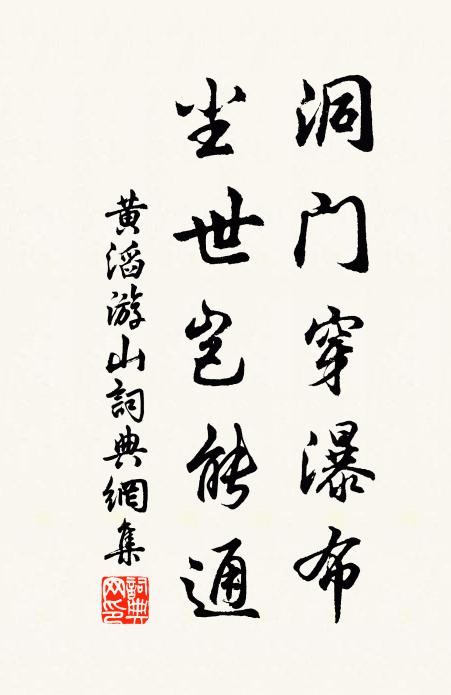 洞门穿瀑布
尘世岂能通
黄滔游山詞典網集
詞典网印